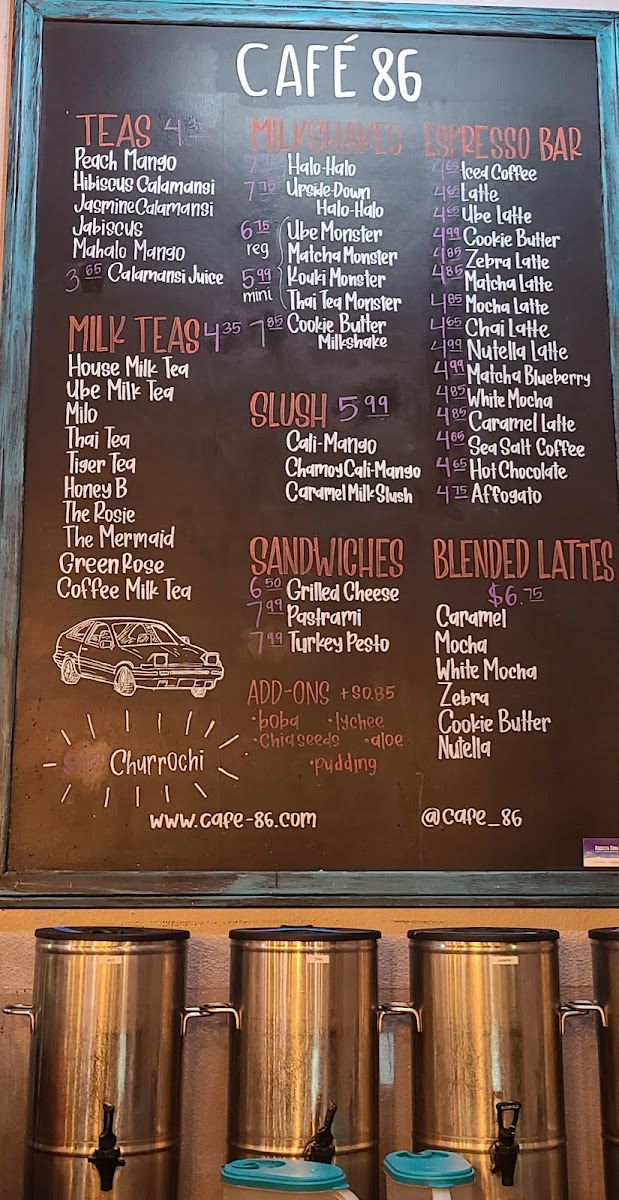 CAFÉ 86
TEAS
Peach Mango
Hibiscus Calamansi
Jasmine Calamansi
Jabiscus
Mahalo Mango
3.65 Calamansi Juice
MILK TEAS 4.35
House Milk Tea
Ube Milk Tea
Milo
Thai Tea
Tiger Tea
Honey B
The Rosie
The Mermaid
Green Rose
Coffee Milk Tea
Churrochi
www.cafe-86.com
MILKSHAKES
Halo-Halo
Upside-Down
Halo-Halo
6.75 Ube Monster
reg Matcha Monster
5.99 Kouki Monster
mini Thai Tea Monster
7.85 Cookie Butter
Milkshake
SLUSH 5.99
Cali-Mango
Chamoy Cali-Mango
Caramel Milk Slush
SANDWICHES
6.50 Grilled Cheese
7.99 Pastrami
7.99 Turkey Pesto
ADD-ONS +$0.85
•boba •lychee
•Chia seeds •aloe
•pudding
ESPRESSO BAR
4.65 Iced Coffee
4.65 Latte
4.65 Ube Latte
4.99 Cookie Butter
4.85 Zebra Latte
4.85 Matcha Latte
4.85 Mocha Latte
4.65 Chai Latte
4.99 Nutella Latte
4.99 Matcha Blueberry
4.85 White Mocha
4.85 Caramel Latte
Sea Salt Coffee
4.65 Hot Chocolate
4.75 Affogato
BLENDED LATTES
$6.75
Caramel
Mocha
White Mocha
Zebra
Cookie Butter
Nutella
@cafe_86